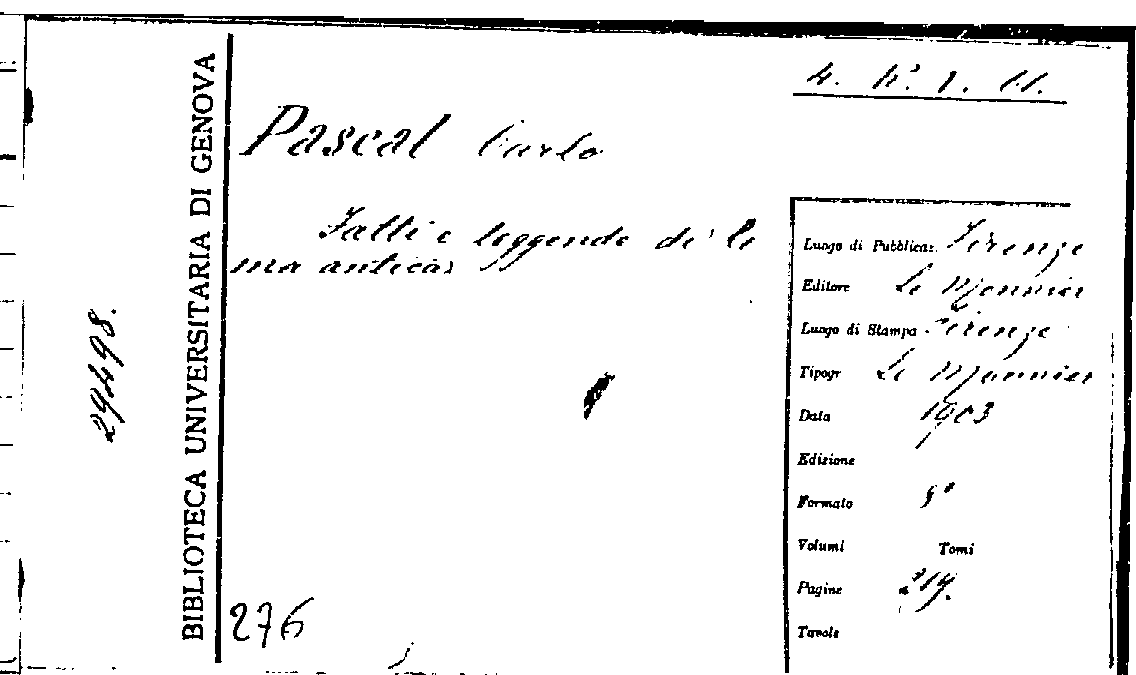 BIBLIOTECA UNIVERSITARIA DI GENOVA
29498.
Pascal Carlo
Fatti e leggende di Ro
ma antica
276
Luogo di Pubblicaz. Firenze
Editore Le Monnier
Luogo di Stampa Firenze
Tipogr Le Monnier
Data 1903
Edizione
Formato 8°
Volumi Tomi
Pagine 219.
Tavole